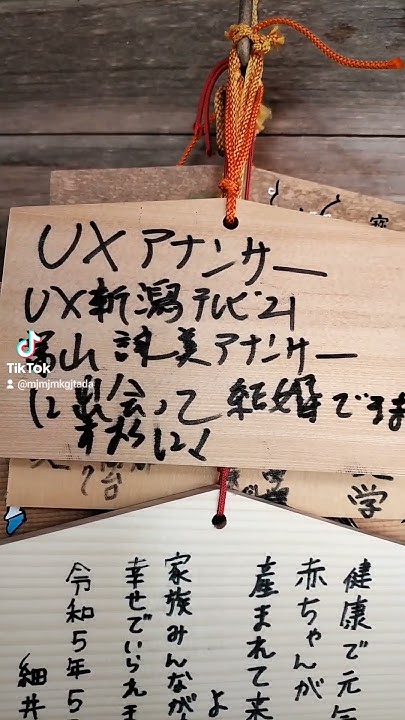 UXアナンサー
UX新潟テレビ21
山諫美アナンサー
に出会って結婚できま
すように
TikTok
@mjmjmkgjtada
学
健康で元気
赤ちゃんが
産まれて来
よ
家族みんなが
幸せでいられま
令和5年5
細井